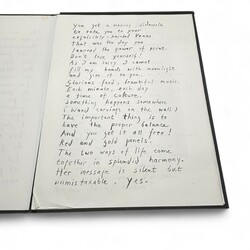 You get a
He take you to your
That was the day you
learned the power of print.
Don't love yourself!
As I am lazy I cannot
fill my hands with moonlight
and give it to you.
Glorious food, beautiful music.
Each minute, each day
a time of culture.
Something happens somewhere
(Wood carvings on the wall)
The important thing is to
have the proper balance.
And you get it all free!
Red and gold panels.
The two ways of life come
together in splendid harmony.
Her message is silent but
unmistakable. Yes.